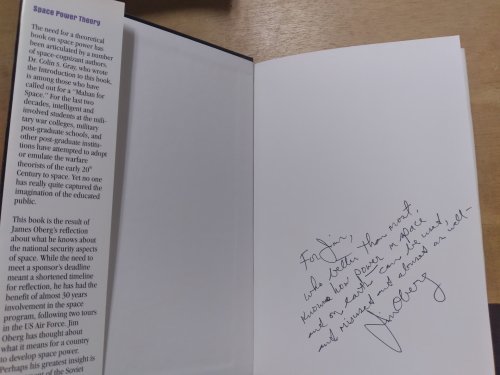 Space Power Theory
The need for a theoretical
book on space power has
been articulated by a number
of space-cognizant authors.
Dr. Colin S. Gray, who wrote
the Introduction to this book,
is among those who have
called out for a "Mahan for
Space." For the last two
decades, intelligent and
involved students at the mili-
tary war colleges, military
post-graduate schools, and
other post-graduate institu-
tions have attempted to adopt
or emulate the warfare
theorists of the early 20th
Century to space. Yet no one
has really quite captured the
imagination of the educated
public.
This book is the result of
James Oberg's reflection
about what he knows about
the national security aspects
of space. While the need to
meet a sponsor's deadline
meant a shortened timeline
for reflection, he has had the
benefit of almost 30 years
involvement in the space
program, following two tours
in the US Air Force. Jim
Oberg has thought about
what it means for a country
to develop space power.
Perhaps his greatest insight is
of the Soviet
For Jim,
who better than most,
knows how power in space
and on earth can be used,
and misused and abused as well-
Jim Oberg